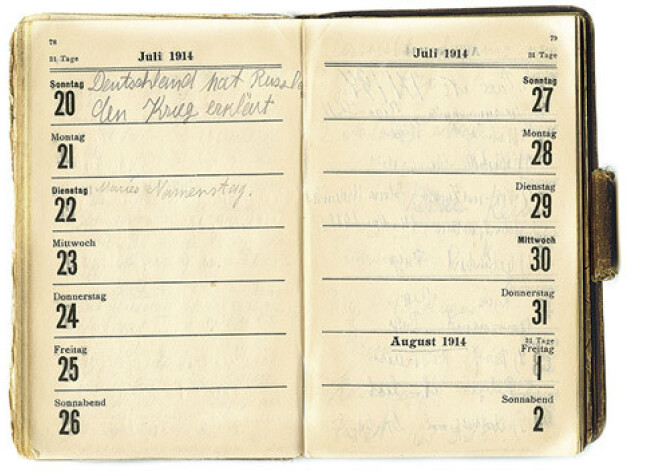 78
31 Tage
Juli 1914
Sonntag
20
Deutschland hat Russla
den Krieg erklärt
Montag
21
Dienstag
22
Maries Namenstag.
Mittwoch
23
Donnerstag
24
Freitag
25
Sonnabend
26
79
Juli 1914
31 Tage
Sonntag
27
Montag
28
Dienstag
29
Mittwoch
30
Donnerstag
31
August 1914
31 Tage
Freitag
1
Sonnabend
2